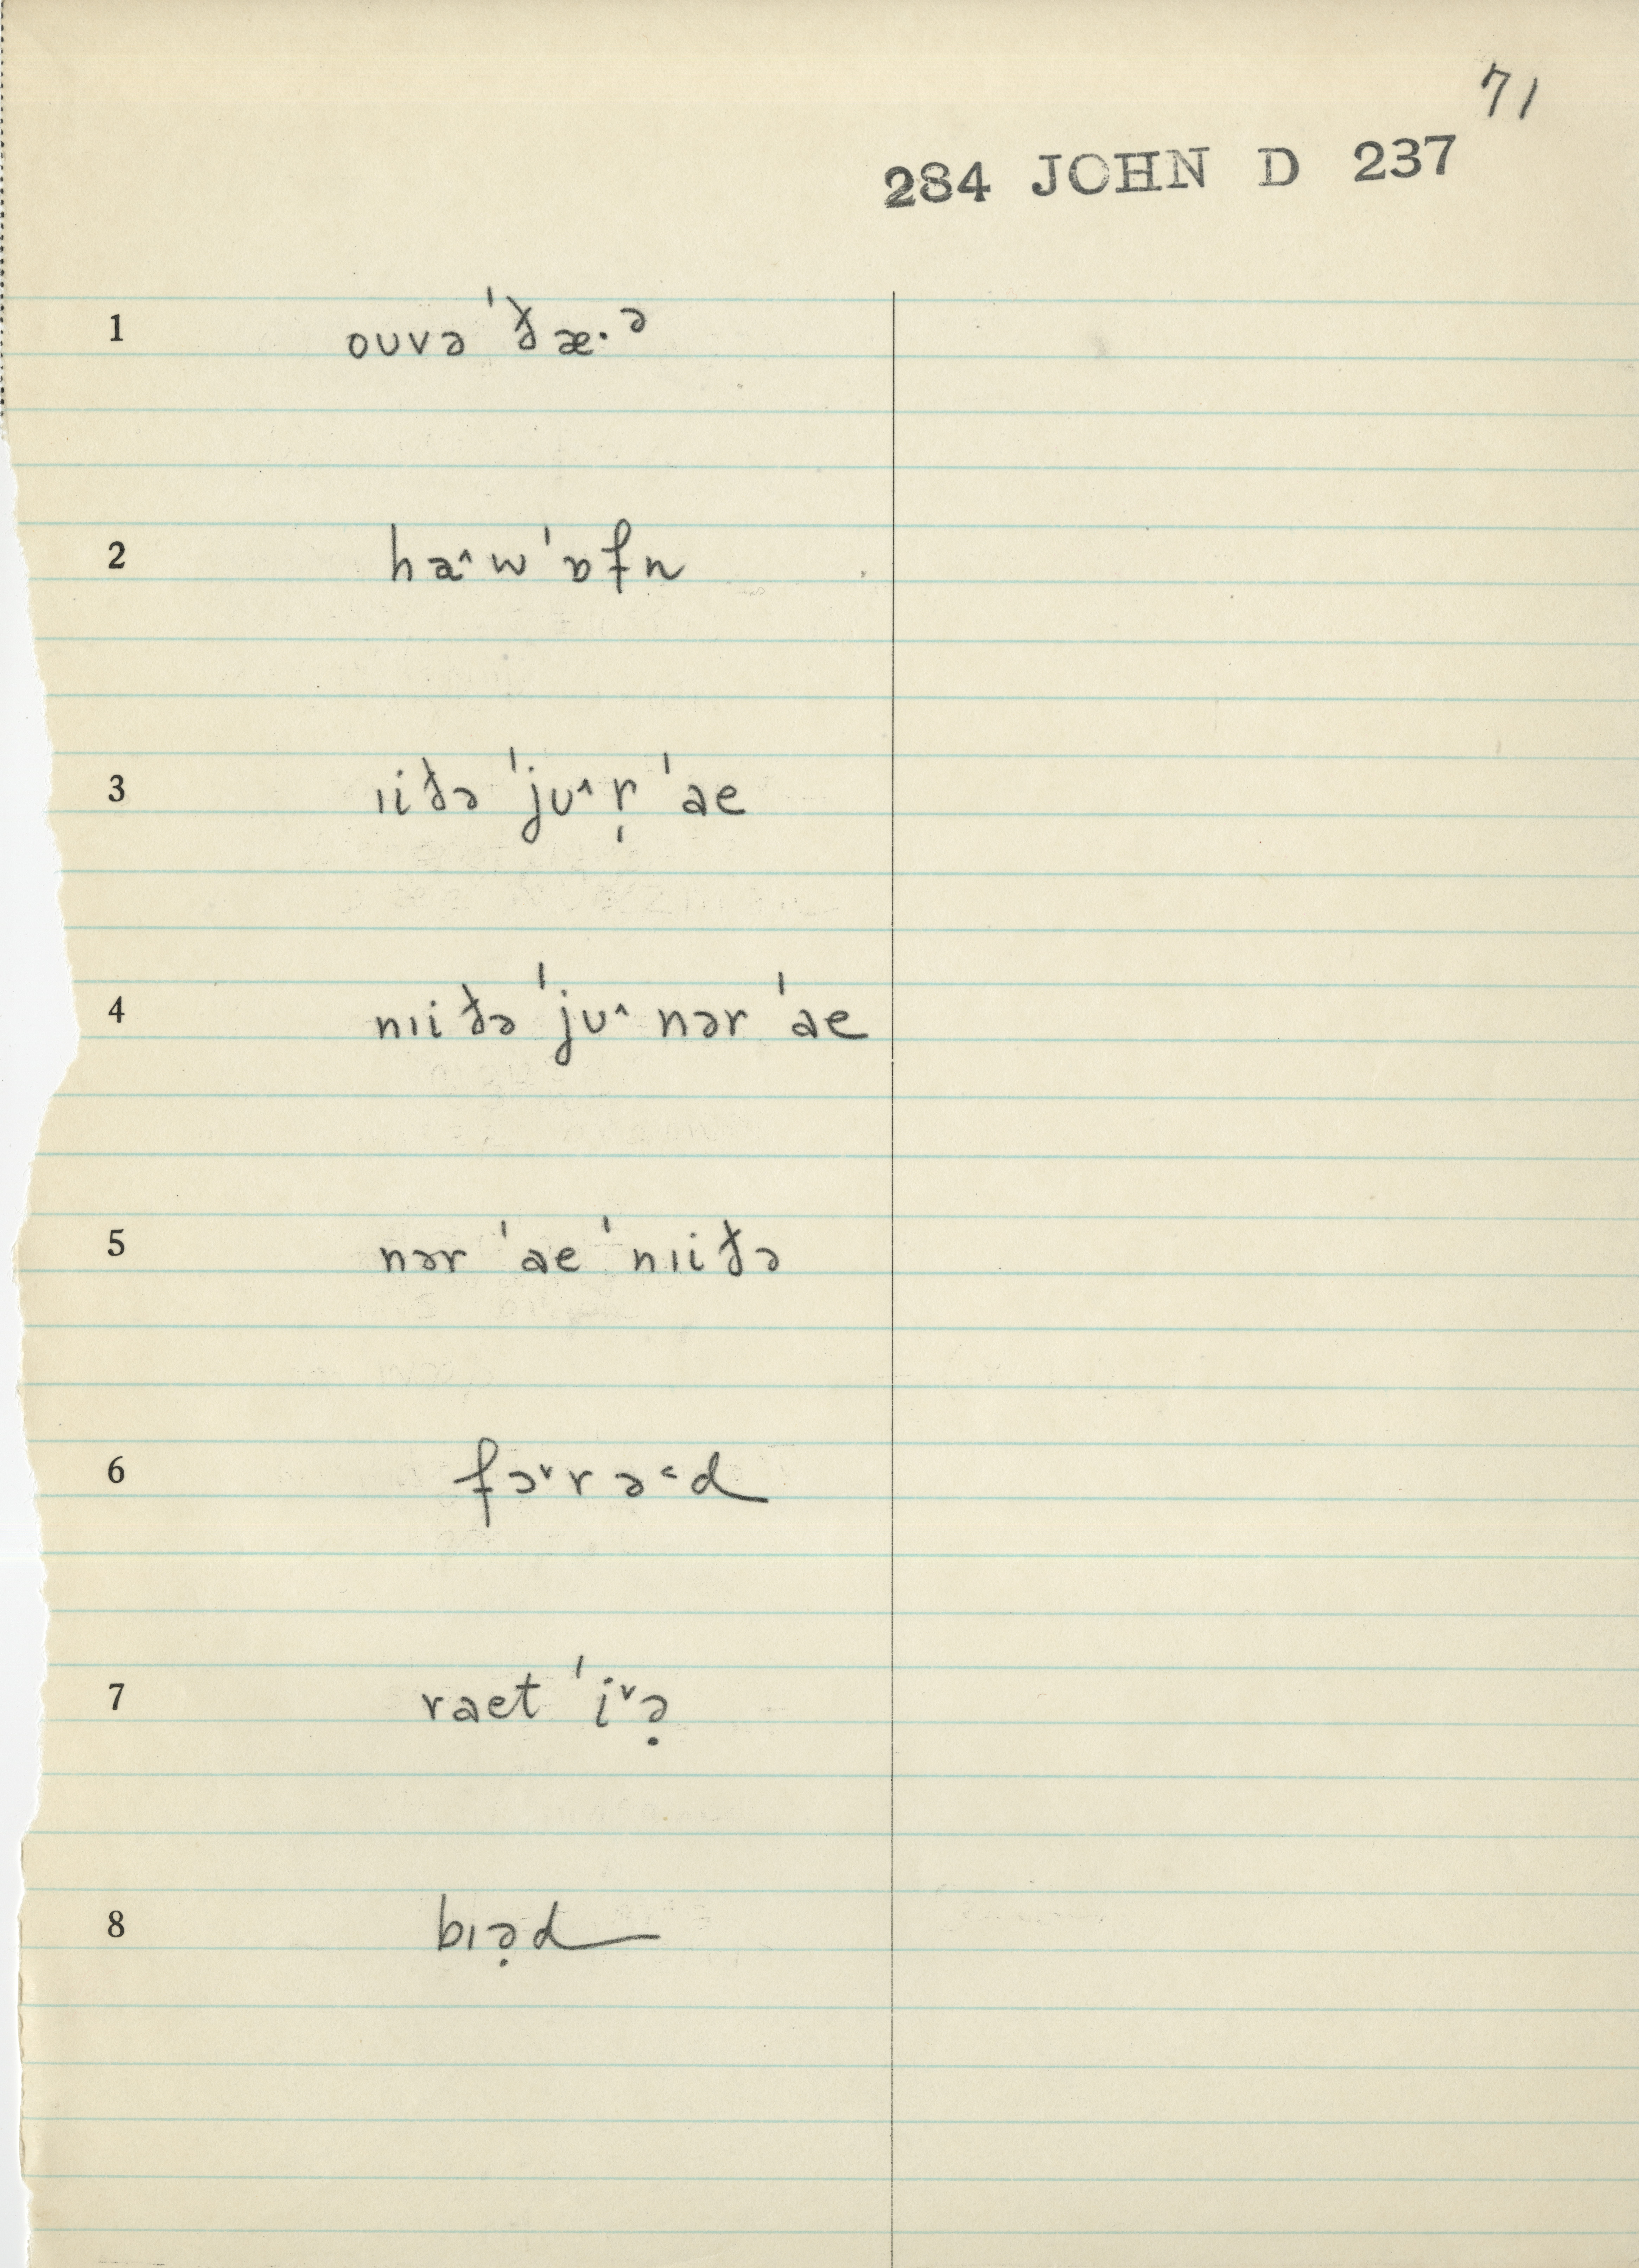 71
284 JOHN D 237
1 ouvə ˈðæ·ᵊ
2 ha˄w ˈɒfn
3 ɪiðə ˈjʊ˄ r̩ ˈae
4 nɪiðə ˈjʊ˄ nər ˈae
5 nər ˈae ˈnɪiðə
6 fə˅rə˂d
7 raet ˈi˅ə̣
8 bɪə̣d